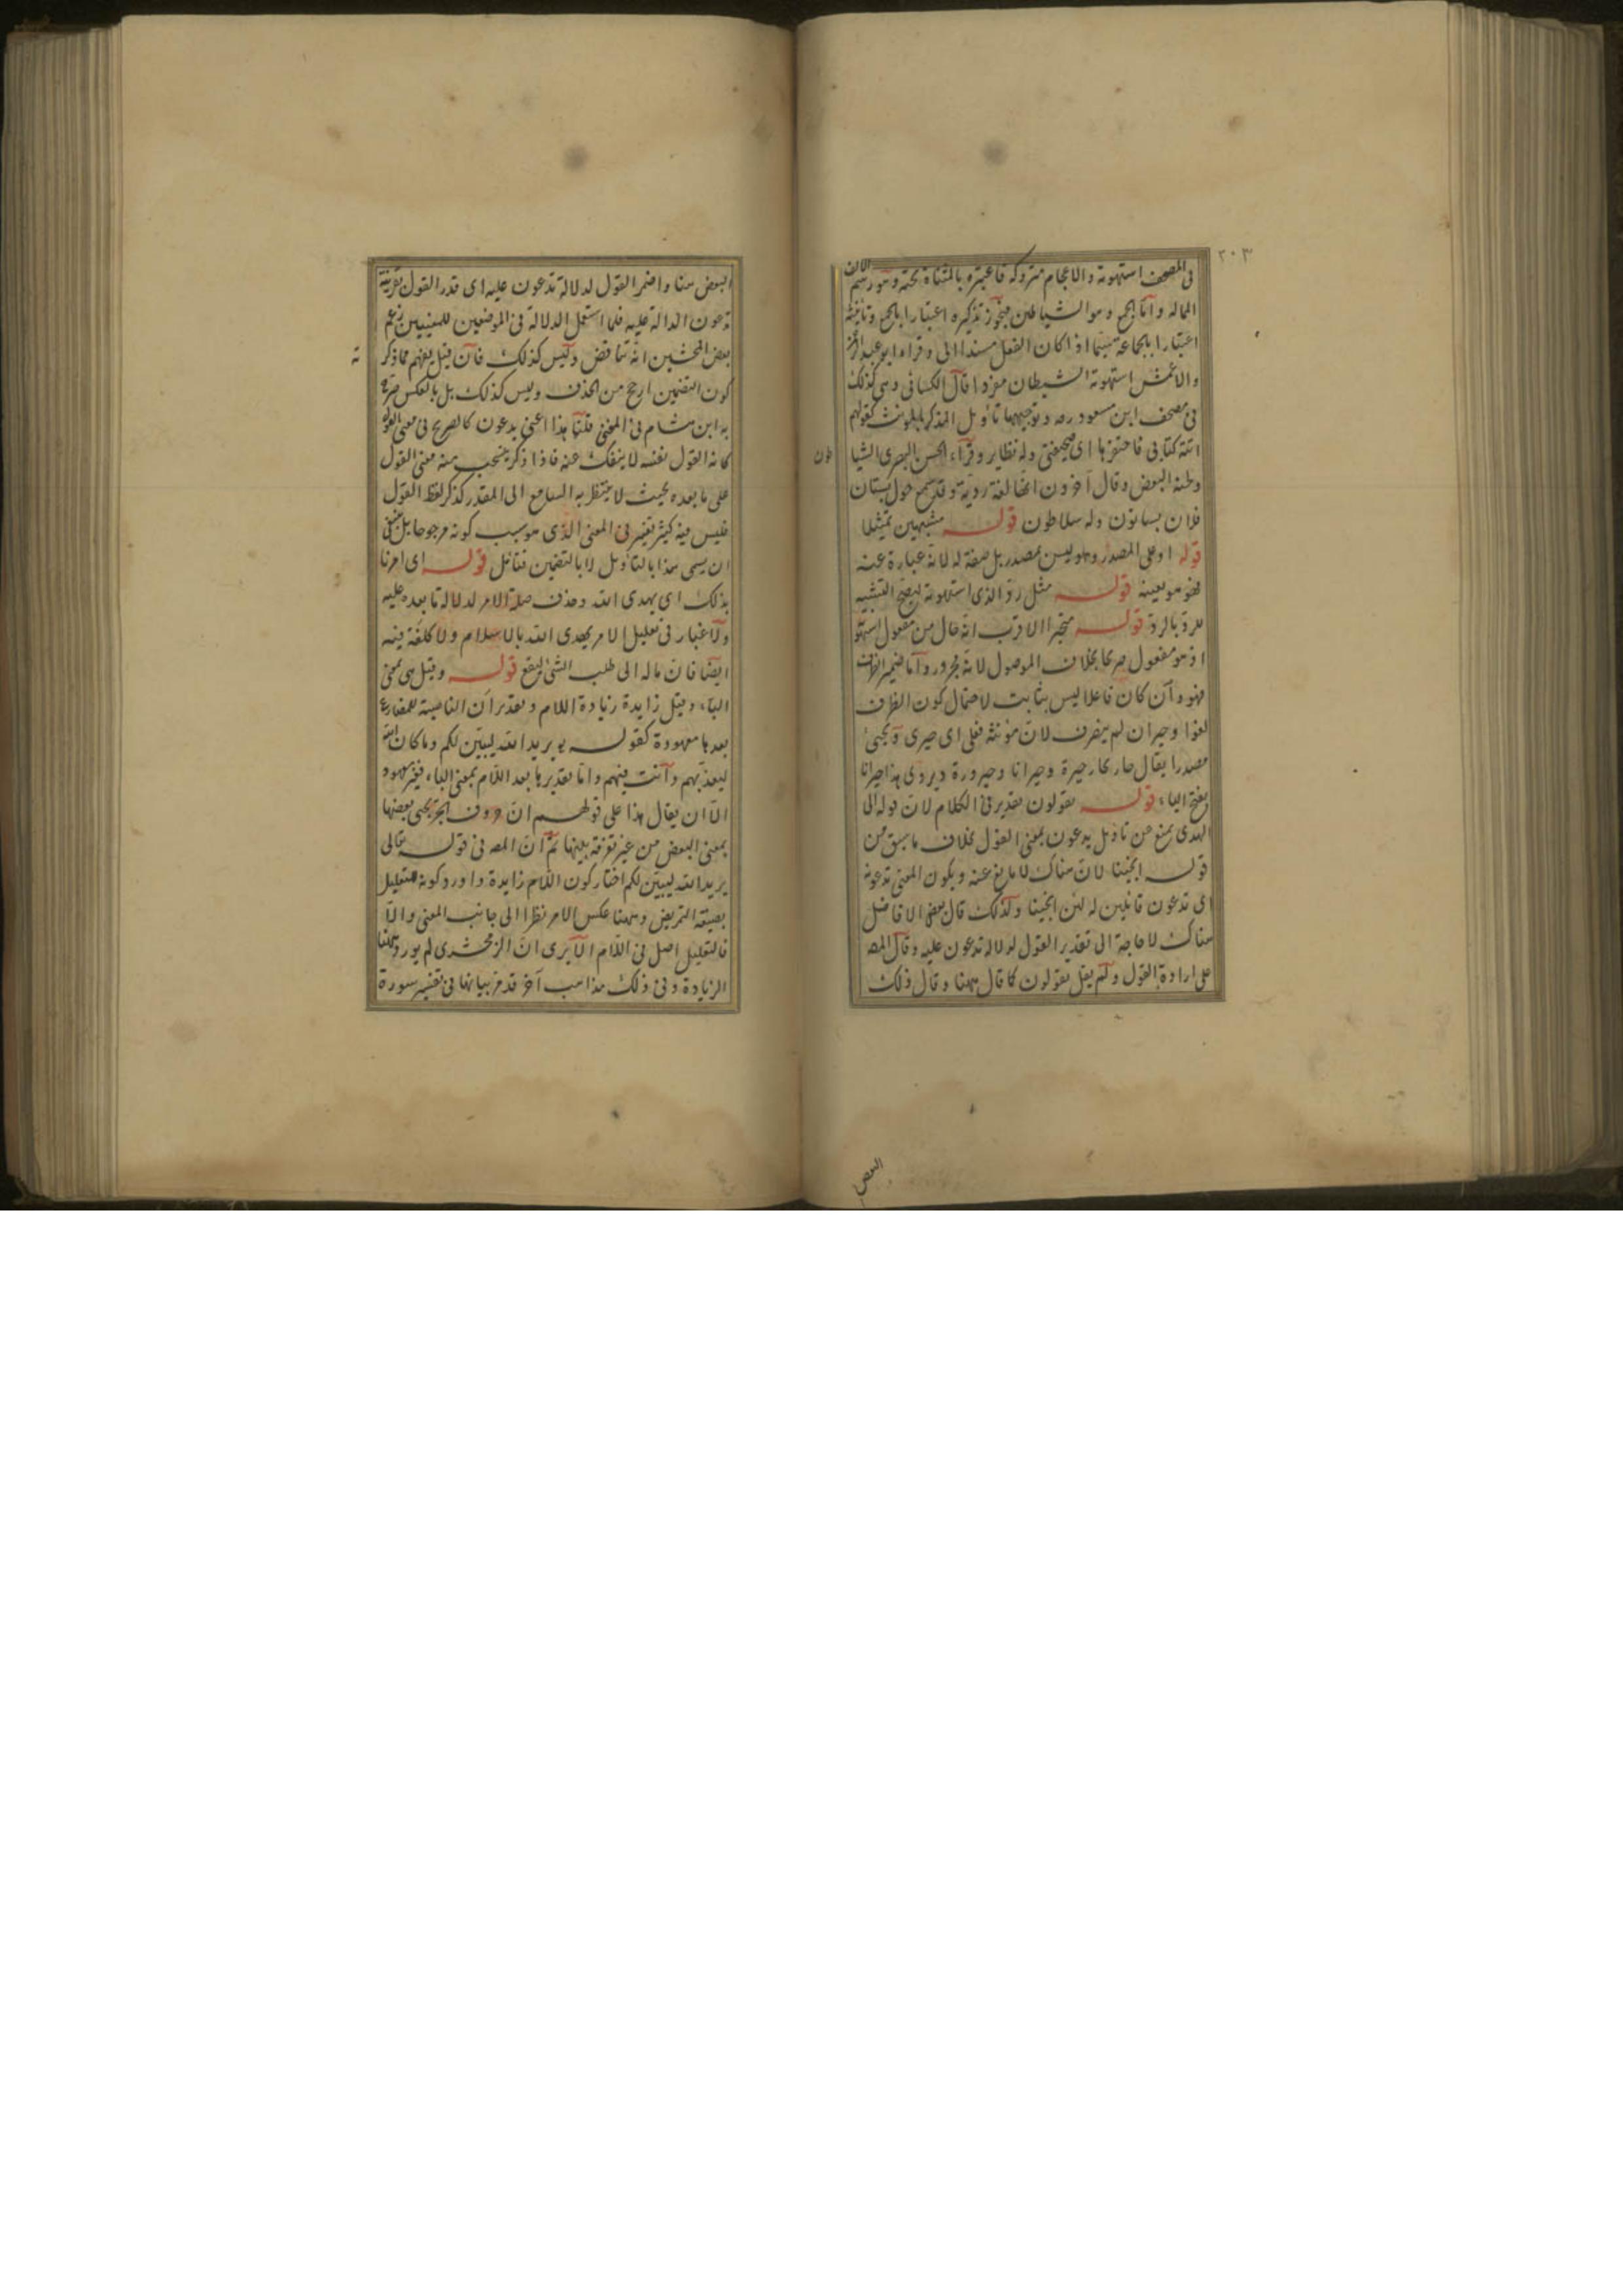 ٢٠٣
في المصحف استهوته والاعجام متروكة فاعتبره بالمثناة تحته وهو رسم الالف
الممالة وانما الجمع وهو الشياطين فيجوز تذكيره اعتبارا بالجمع وتانيثه
اعتبارا بالجماعة بينما اذا كان الفعل مسندا الى وقراء ابو عبد الرحمن
والاعمش استهوته الشيطان مفردا قال الكسائي وهي كذلك
في مصحف ابن مسعود رضه وتوجيهها تاويل المذكر بالمونث كقولهم
اتته كتابي فاحتقرها اي صحيفتي وله نظاير وقرآء الحسن البصري الشيا
طون
وطنه البعض وقال آخرون انها لغة ردية وقد سمع حول بستان
فلان بساتون وله سلاطون قوله مشبهين تمثيلا
قوله او على المصدر وهو ليس بمصدر بل صفة له لانه عبارة عنه
فهو هو بعينه قوله مثل رد الذي استهوته ليصح التشبيه
للرد بالرد قوله متحيرا الاقرب انه حال من مفعول استهو
اذ هو مفعول صريحا بخلاف الموصول لانه مجرور واما ضمير الظرف
فهو وان كان فاعلا ليس بثابت لاحتمال كون الظرف
لغوا وحيران لم ينصرف لان مونثه فعلى اي حيرى ويجيء
مصدرا يقال حار يحار حيرة وحيرانا وحيرورة ويروى هذا حيرانا
بفتح الياء قوله يقولون تقدير في الكلام لان قوله الى
الهدى يمنع من تاويل يدعون بمعنى القول بخلاف ما سبق من
قوله انجيتنا لان هناك لا مانع عنه ويكون المعنى تدعونه
اي تدعون قائلين له لئن انجيتنا ولذلك قال بعض الافاضل
هناك لا حاجة الى تقدير القول لدلالة تدعون عليه وقال المصـ
على ارادة القول ولم يقل يقولون كما قال ههنا وقال ذلك
البعض
البعض هنا واضمر القول لدلالة تدعون عليه اي قدر القول بقرينة
تدعون الدالة عليه فلما استعمل الدلالة في الموضعين للمعنيين زعم
بعض المحشين انه تناقض وليس كذلك فان قيل يفهم مما ذكر
ته
كون التضمين ارجح من الحذف وليس كذلك بل بالعكس صرح
به ابن هشام في المغني قلنا هذا اعني يدعون كالصريح في معنى القول
كانه القول نفسه لا ينفك عنه فاذا ذكر ينسحب منه معنى القول
على ما بعده بحيث لا ينتظر به السامع الى المقدر كذكر لفظ القول
فليس فيه كثير تغيير في المعنى الذي هو سبب كونه مرجوحا بل ينبغي
ان يسمى هذا بالتاويل لا بالتضمين فتامل قوله اي امرنا
بذلك اي يهدي الله وحذف صلة الامر لدلالة ما بعده عليه
ولا غبار في تعليل الامر بهدي الله بالاسلام ولا كلفة فيه
ايضا فان ماله الى طلب الشئ ليقع قوله وقيل هي بمعنى
الباء وقيل زايدة زيادة اللام وتقدير ان الناصبة للمضارع
بعدها معهودة كقوله يريد الله ليبين لكم وما كان الله
ليعذبهم وانت فيهم واما تقديرها بعد اللام بمعنى الباء فغير معهود
الا ان يقال هذا على قولهم ان حروف الجر يجيء بعضها
بمعنى البعض من غير تفرقة بينها ثم ان المصـ في قوله تعالى
يريد الله ليبين لكم اختار كون اللام زايدة واورد كونه للتعليل
بصيغة التمريض وههنا عكس الامر نظرا الى جانب المعنى والا
فالتعليل اصل في اللام الا يرى ان الزمخشري لم يورد ههنا
الزيادة وفي ذلك مذاهب آخر قد مر بيانها في تفسير سورة